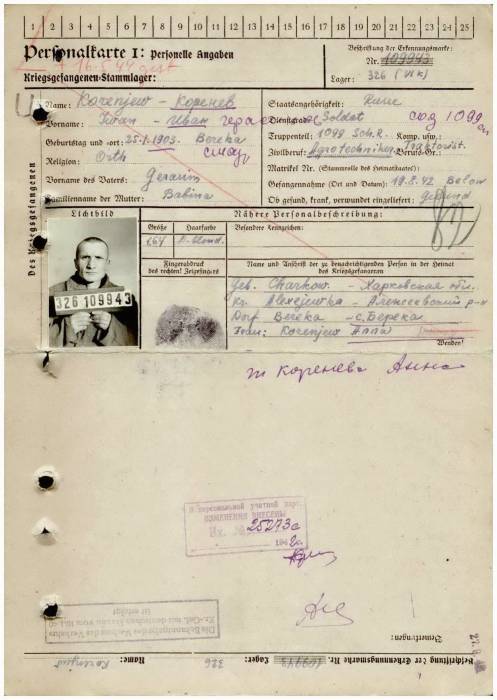 1 2 3 4 5 6 7 8 9 10 11 12 13 14 15 16 17 18 19 20 21 22 23 24 25
Personalkarte I: Personelle Angaben
Kriegsgefangenen-Stammlager:
Beschriftung der Erkennungsmarke:
Nr. 109943
Lager: 326 (VI K)
+ 16.5.44 gest
Des Kriegsgefangenen
Name: Korenjew - Коренев
Vorname: Iwan - Иван
Geburtstag und -ort: 25.1.1903. Bereka
Religion: Orth
Vorname des Vaters: Gerasim
Familienname der Mutter: Babina
Staatsangehörigkeit: Russe
Dienstgrad: Soldat
Truppenteil: 1099 Sch.R. Komp. usw.:
Zivilberuf: Agrotechniker Berufs-Gr.: Traktorist.
Matrikel Nr. (Stammrolle des Heimatstaates):
Gefangennahme (Ort und Datum): 19.8.42 Below
Ob gesund, krank, verwundet eingeliefert: Gesund
Lichtbild
326 109943
Nähere Personalbeschreibung:
Größe Haarfarbe Besondere Kennzeichen:
d. blond.
Fingerabdruck
des rechten! Zeigefingers
Name und Anschrift der zu benachrichtigenden Person in der Heimat
des Kriegsgefangenen
Geb. Charkow - Харковская обл.
Kr. Alexejewka - Алексеевский р-н
Dorf Bereka - с. Берека
Frau: Korenjew Anna
Wenden!
ж Коренева Анна
В персональной учетной карт.
ИЗМЕНЕНИЯ ВНЕСЕНЫ
Вх. № 25273с
194 г.
Bemerkungen:
Beschriftung der Erkennungsmarke Nr. 109943 Lager: 326 Name: Korenjew